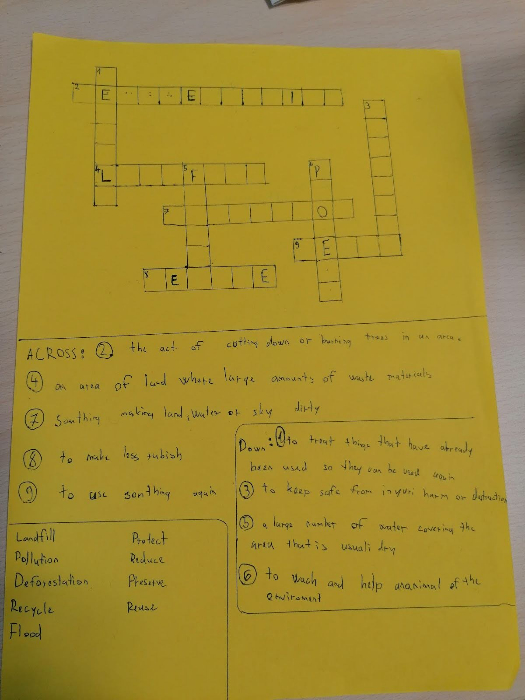 1
2 E E I
3
4 L 5 F 6 P
7 O
9 E
8 E E
ACROSS: 2 the act of cutting down or burning trees in an area.
4 an area of land where large amounts of waste materials
7 Somthing making land, water or sky dirty
8 to make less rubish
9 to use somthing again
Down: 1 to treat things that have already
been used so they can be used again
3 to keep safe from injuri harm or
5 a large number of water covering the
area that is usuali dry
6 to and help animal of the
enviroment
Landfill Protect
Pollution Reduce
Deforestation Preserve
Recycle Reuse
Flood